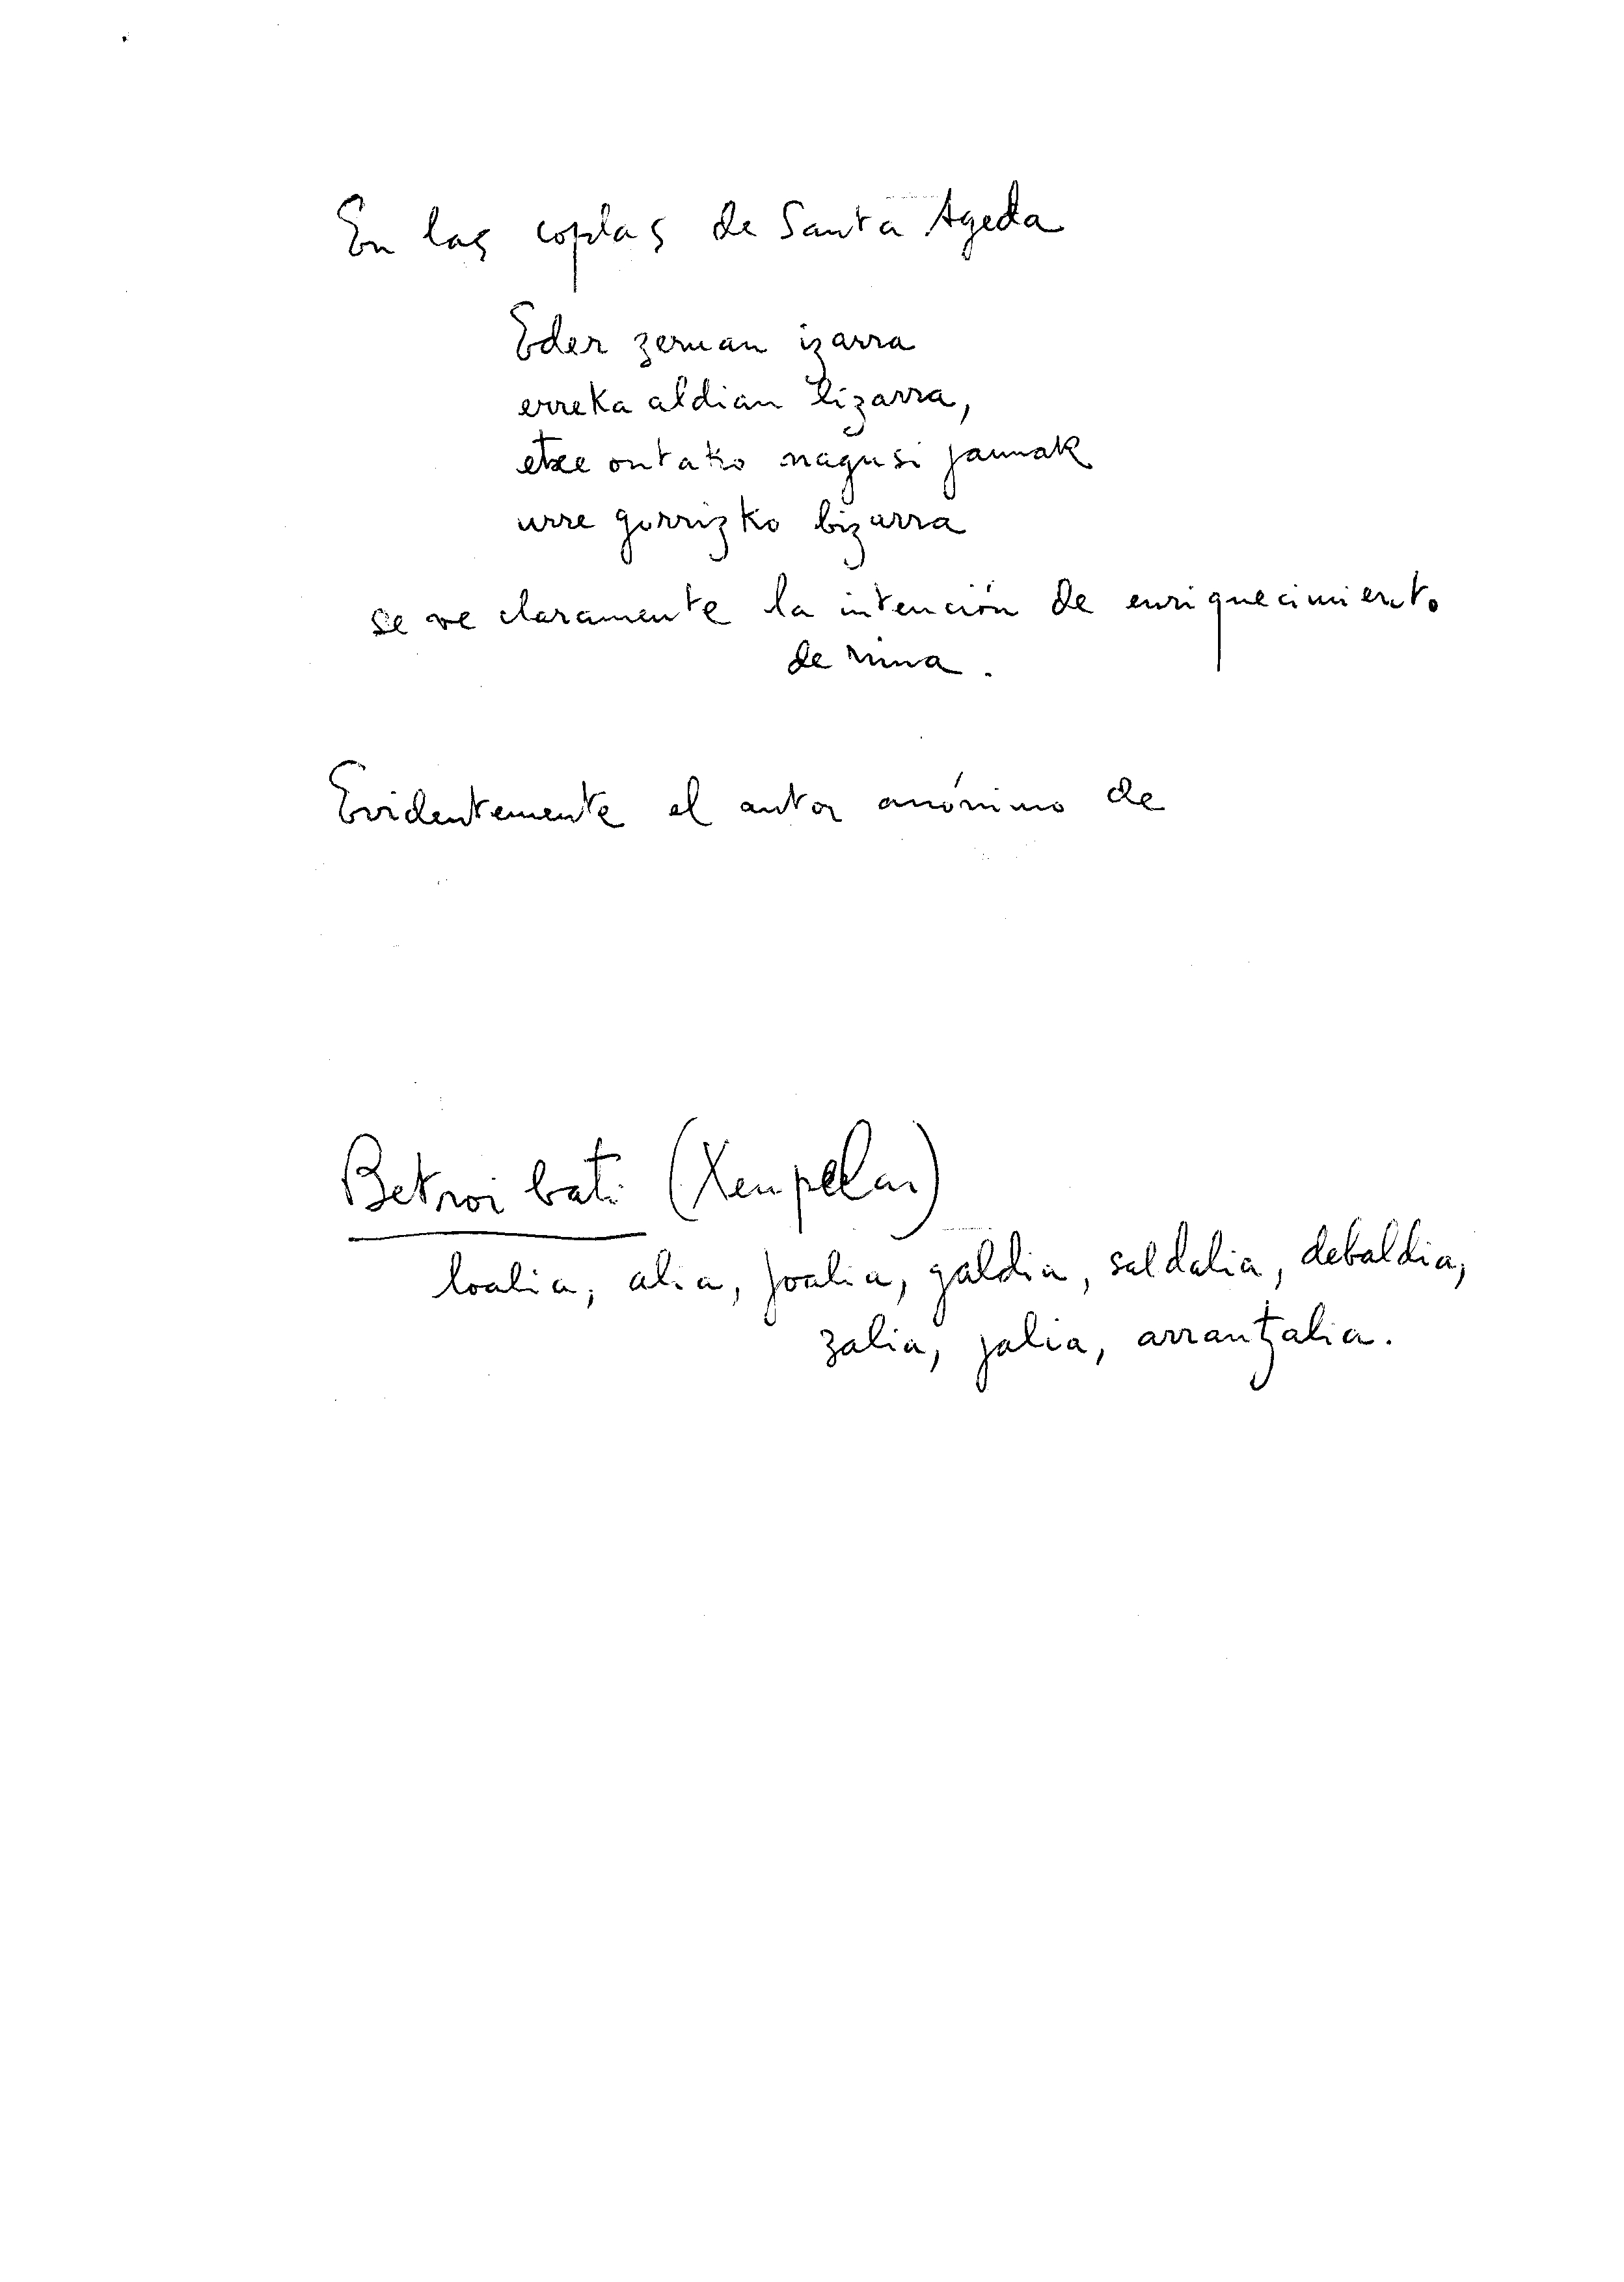 En las coplas de Santa Ageda
Eder zeruan izarra
erreka aldian lizarra,
etxe ontako nagusi jaunak
urre gorrizko bizarra
se ve claramente la intención de enriquecimiento
de rima.
Evidentemente el autor anónimo de
Betroi bati (Xenpelar)
loalia, alia, joalia, galdia, saldalia, debaldia,
zalia, jalia, arrantzalia.